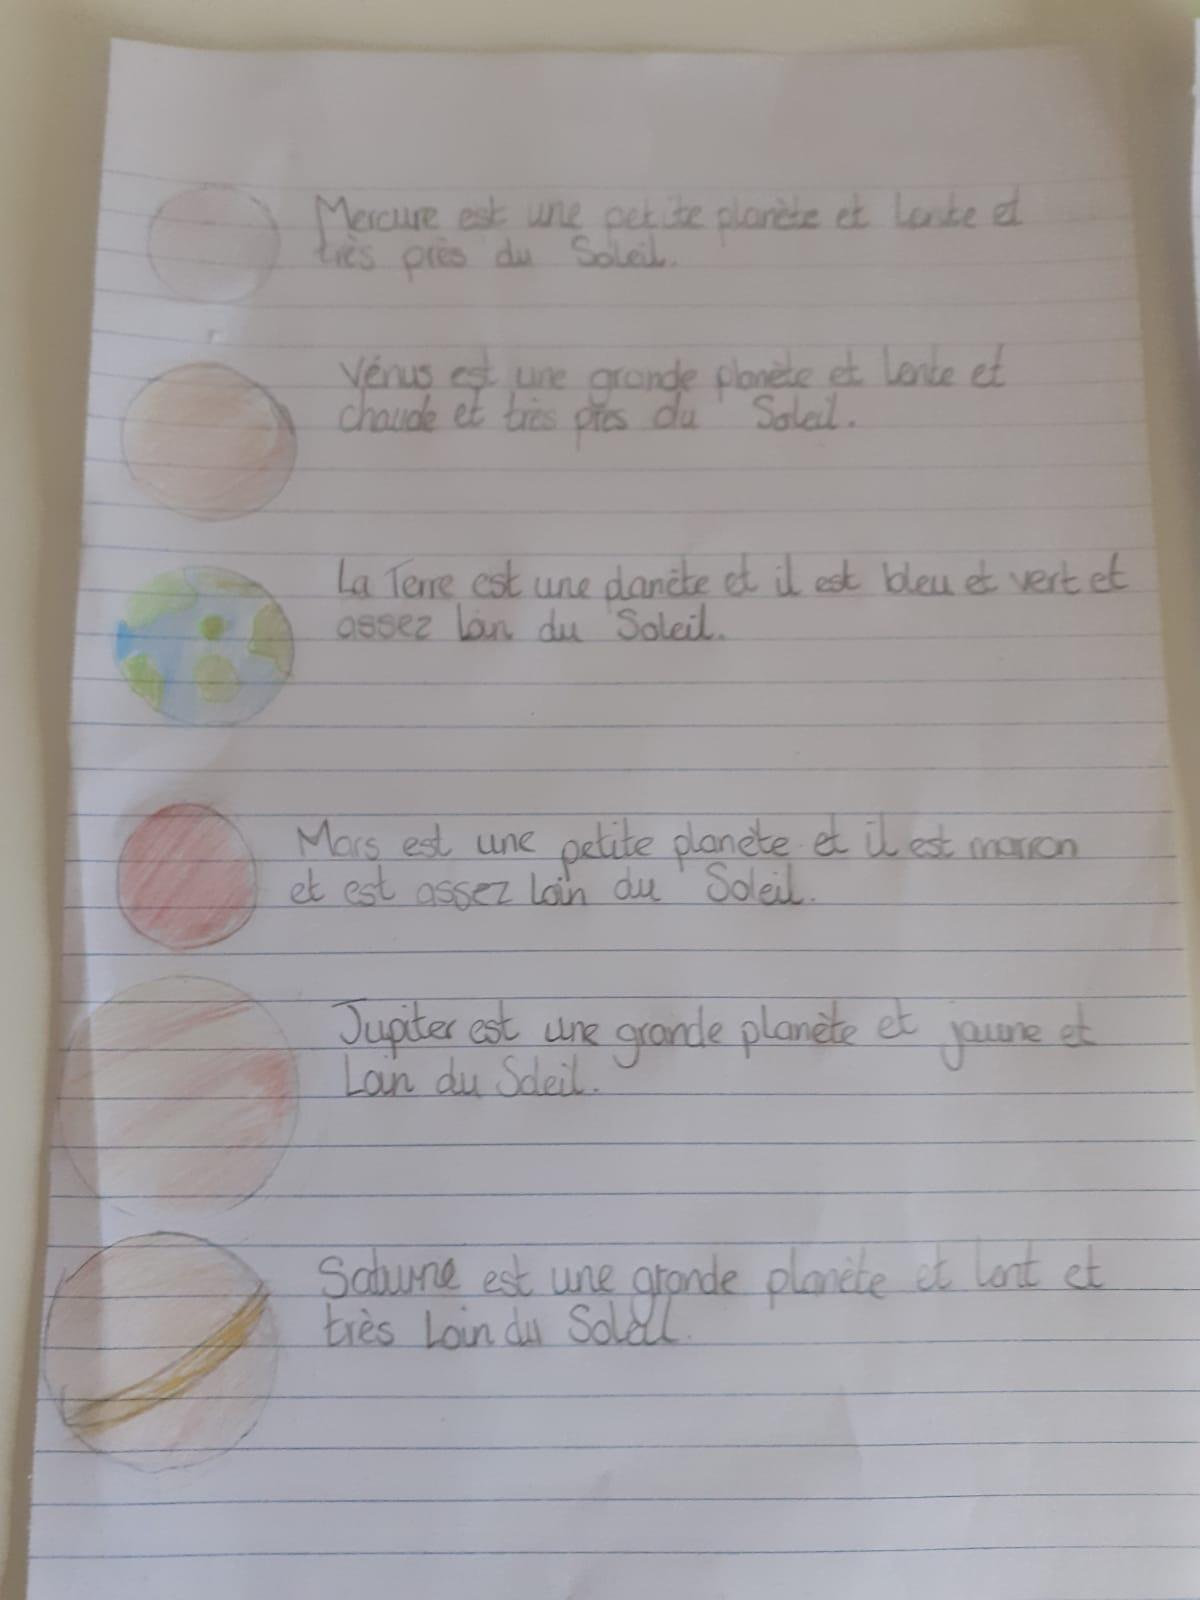 Mercure est une petite planète et lente et
très près du Soleil.
Vénus est une grande planète et lente et
chaude et très près du Soleil.
La Terre est une planète et il est bleu et vert et
assez loin du Soleil.
Mars est une petite planète et il est marron
et est assez loin du Soleil.
Jupiter est une grande planète et jaune et
Loin du Soleil.
Saturne est une grande planète et lent et
très Loin du Soleil.